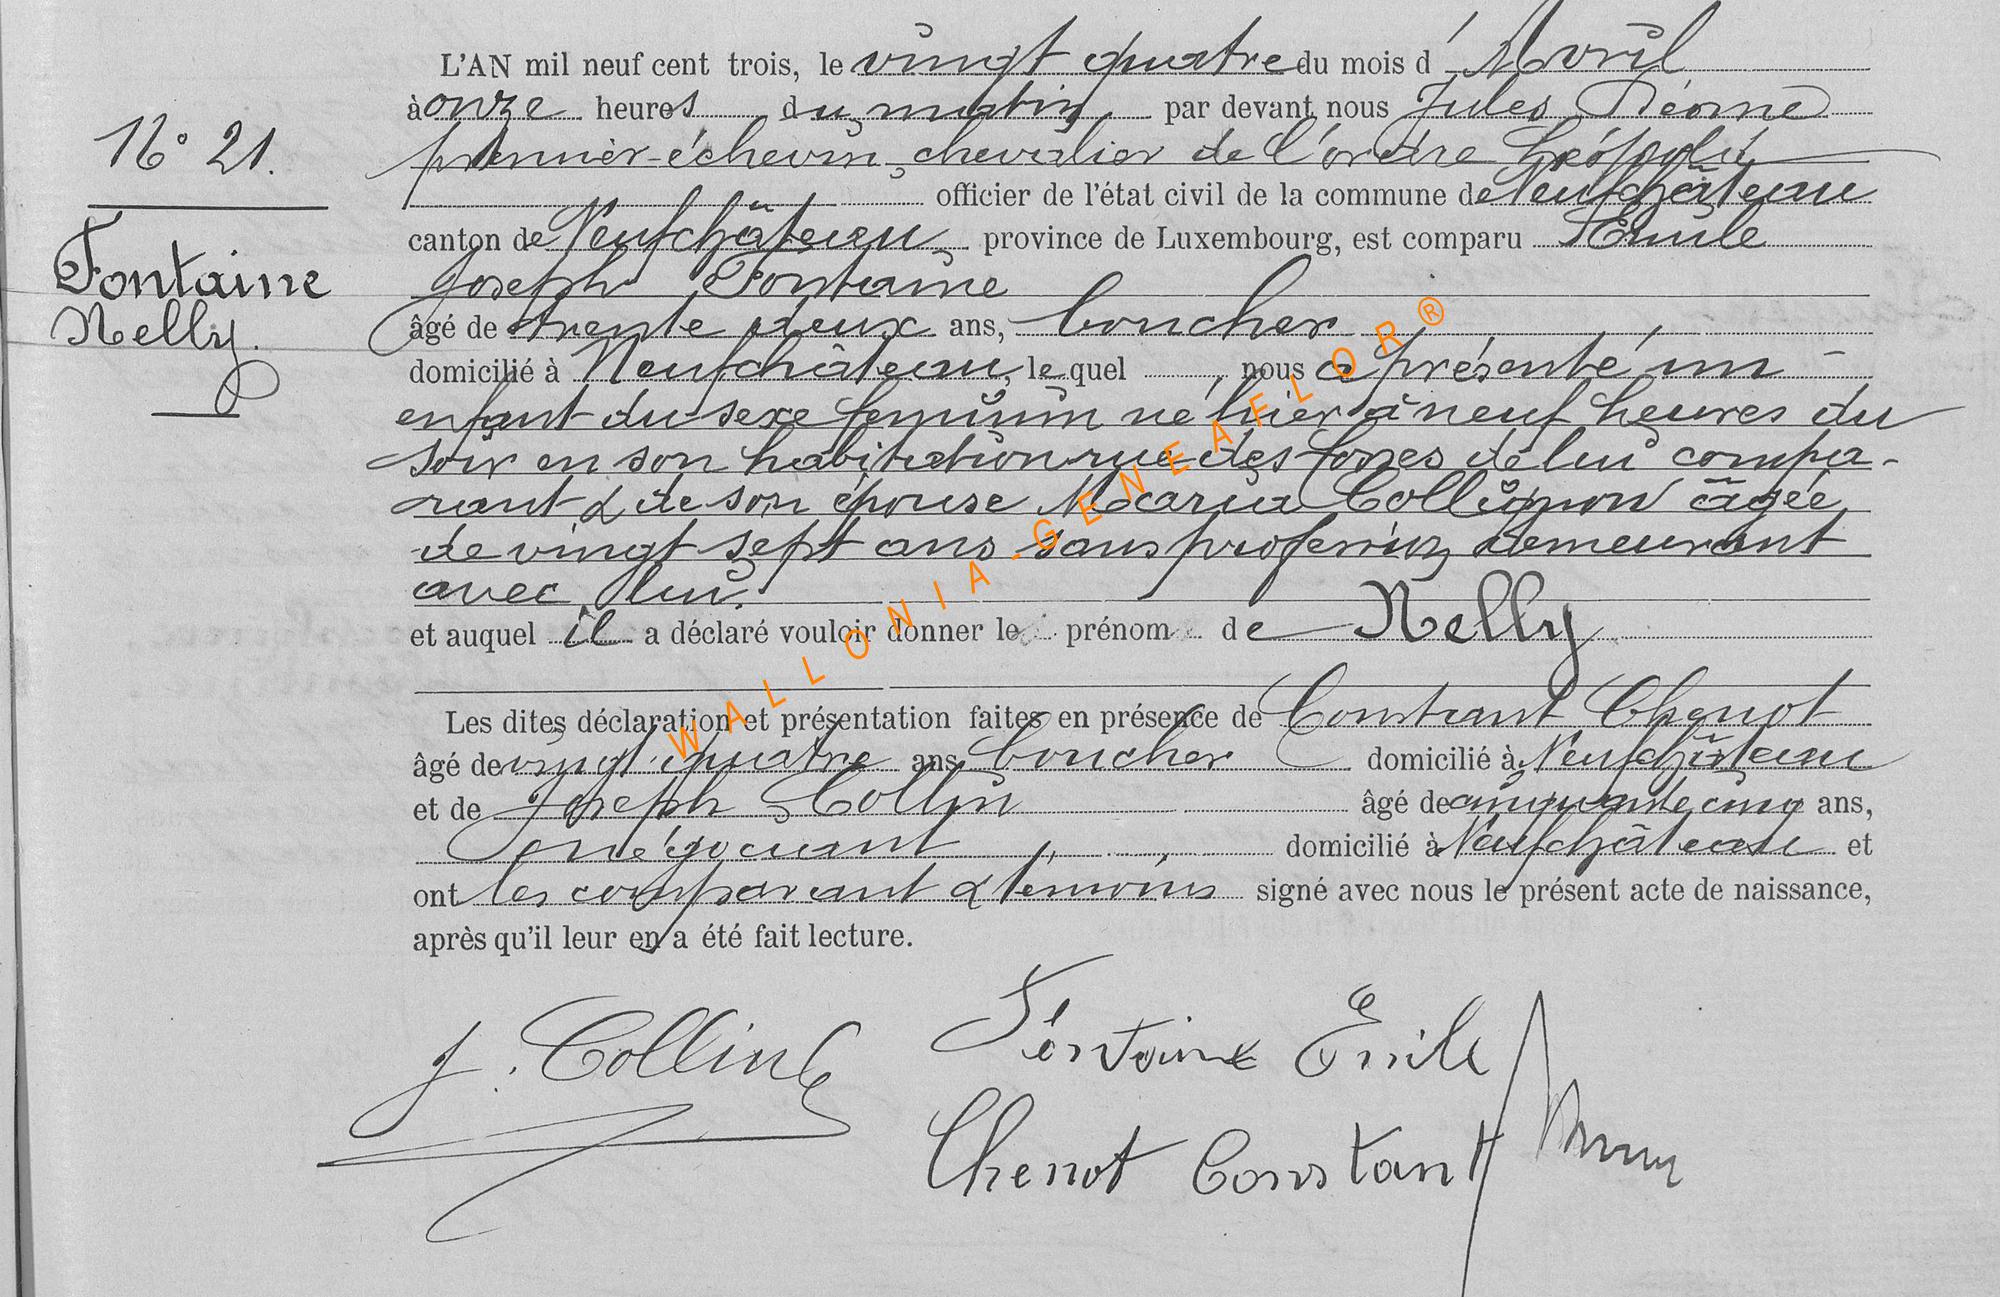 L'AN mil neuf cent trois, le vingt quatre du mois d'Avril
à onze heures du matin par devant nous Jules
premier échevin, chevalier de l'ordre Léopold,
officier de l'état civil de la commune de Neufchâteau
canton de Neufchâteau, province de Luxembourg, est comparu Emile
Joseph Fontaine
âgé de trente deux ans, boucher
domicilié à Neufchâteau, le quel, nous a présenté un
enfant du sexe féminin né hier à neuf heures du
soir en son habitation rue des fosses de lui compa-
rant & de son épouse Maria Collignon âgée
de vingt sept ans sans profession demeurant
avec lui.
et auquel il a déclaré vouloir donner le prénom de Nelly
Les dites déclaration et présentation faites en présence de Constant Chenot
âgé de vingt quatre ans boucher domicilié à Neufchâteau
et de Joseph Collin âgé de cinquante cinq ans,
négociant domicilié à Neufchâteau et
ont les comparant & témoins signé avec nous le présent acte de naissance,
après qu'il leur en a été fait lecture.
N° 21.
Fontaine
Nelly.
J. Collin
Fontaine Emile
Chenot Constant
WALLONIA-GENEAFLOR®